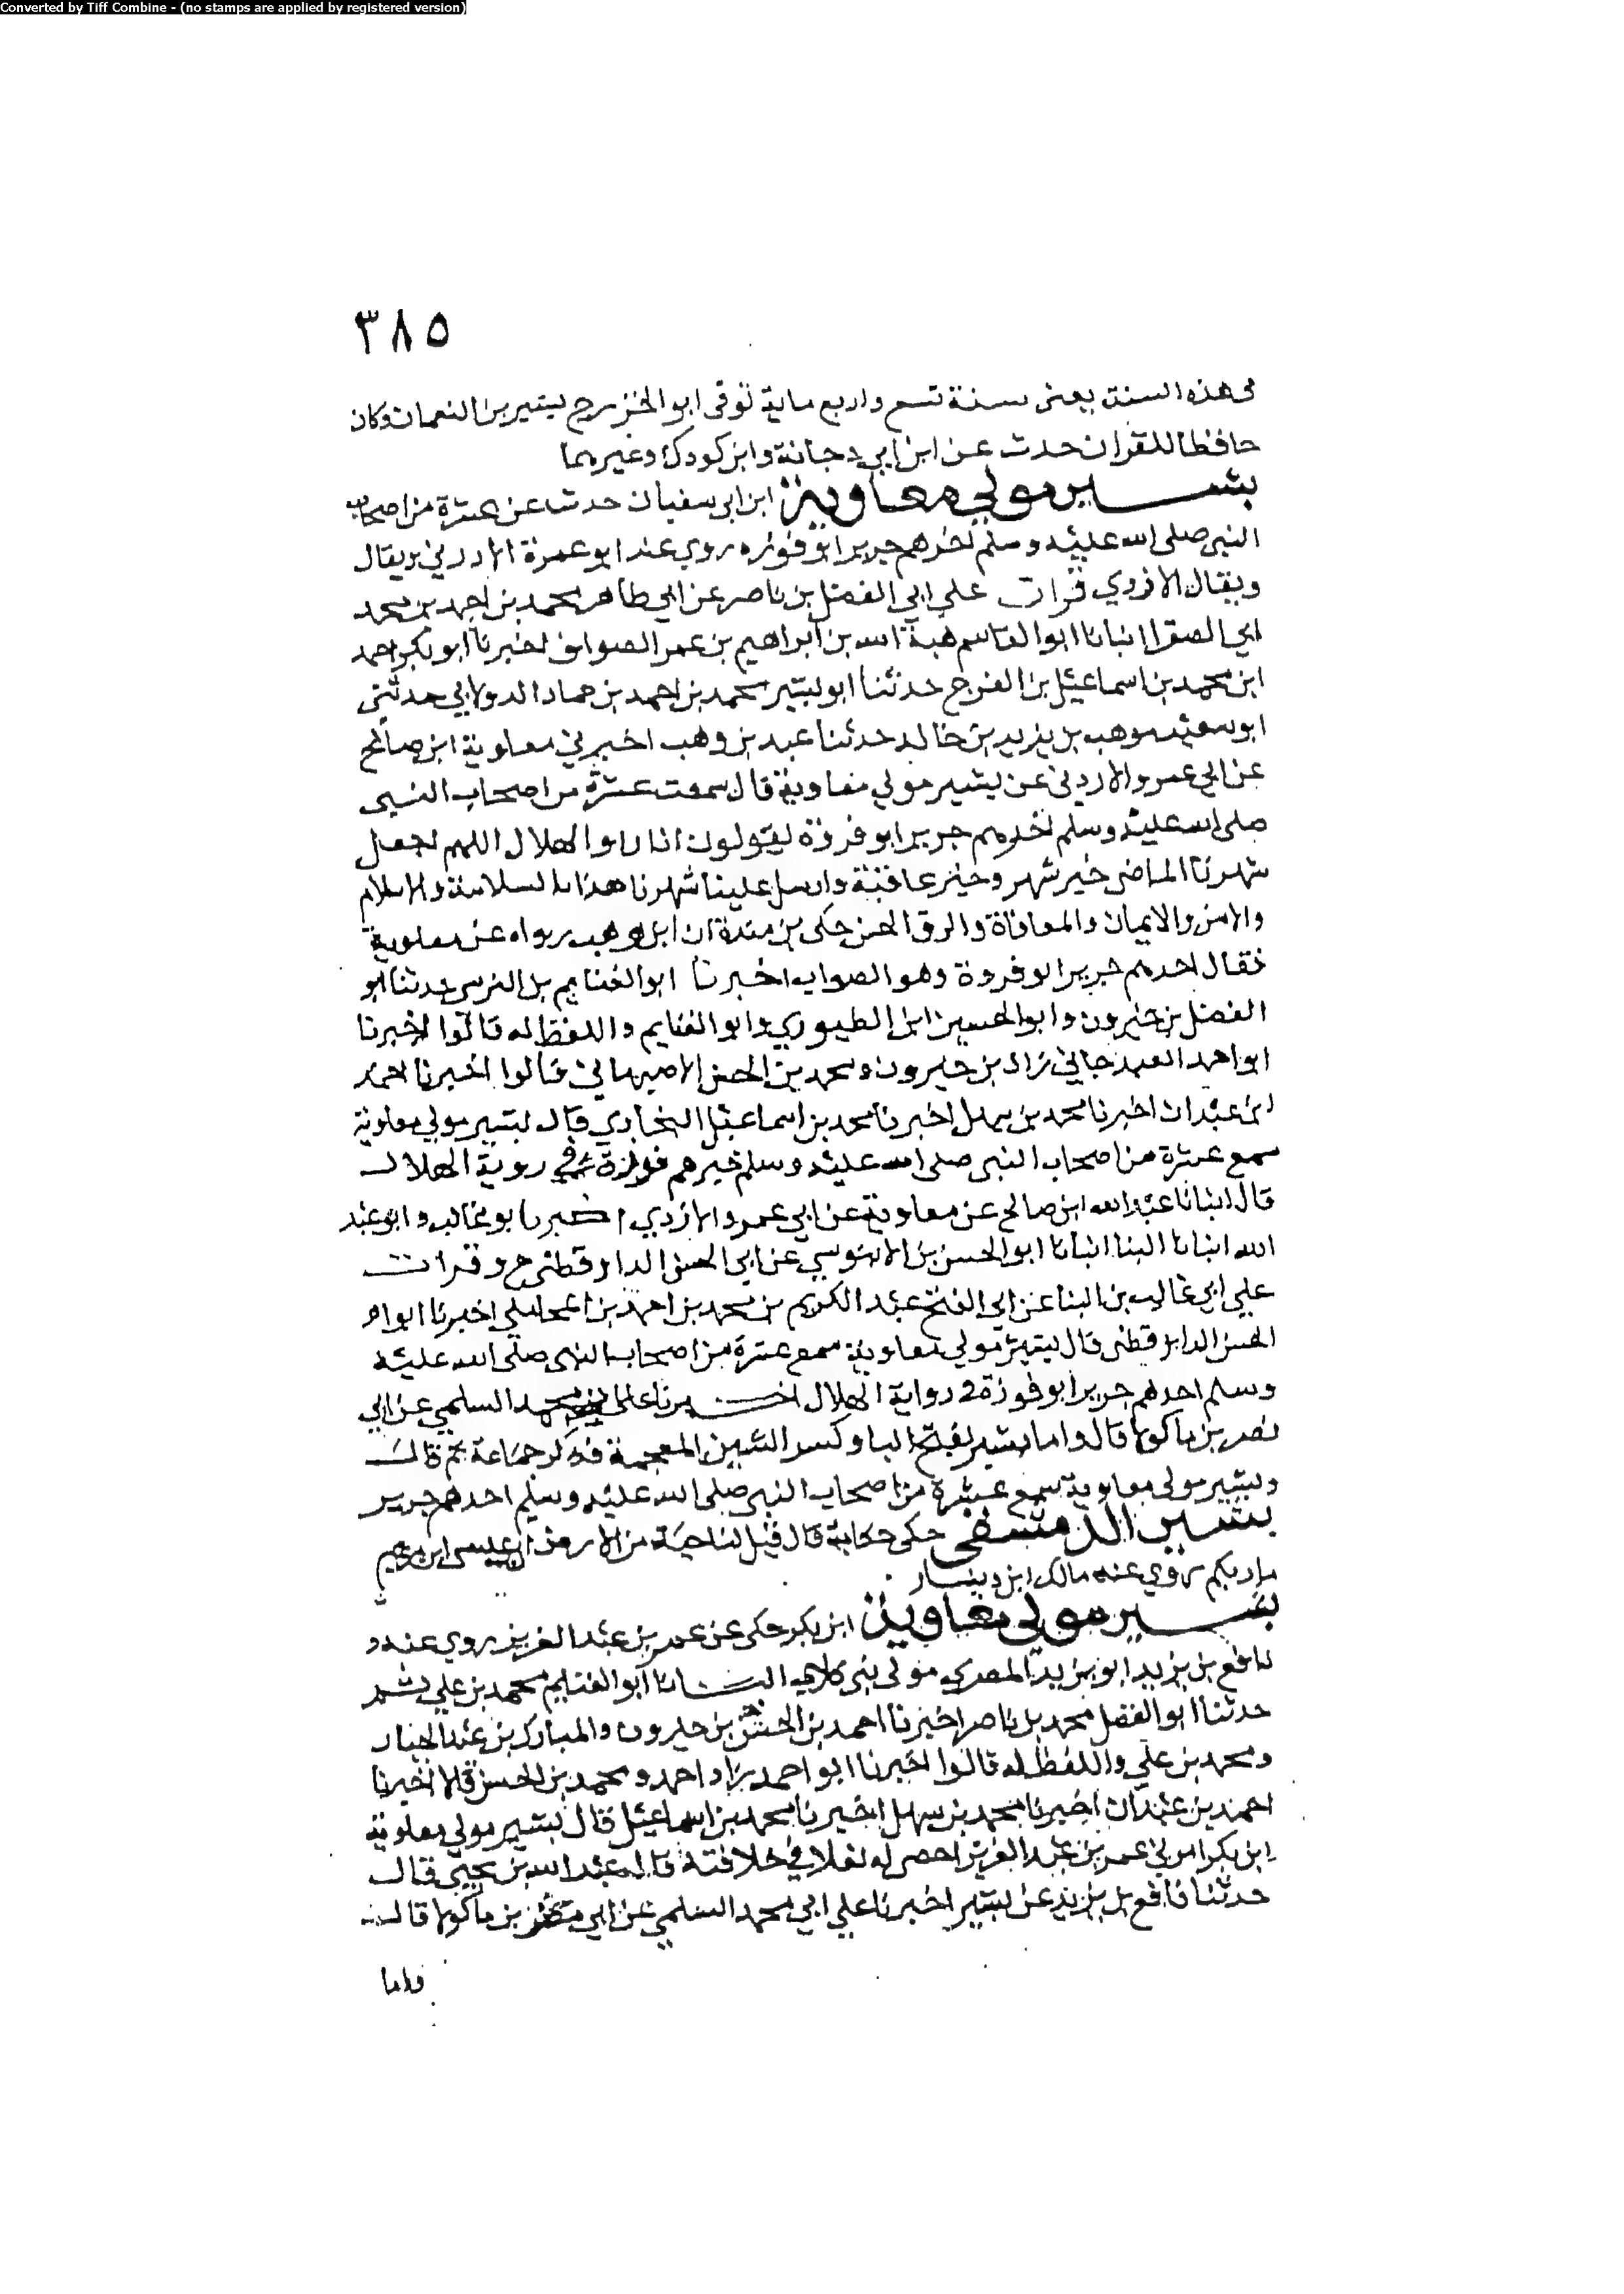 Converted by Tiff Combine - (no stamps are applied by registered version)
٣٨٥
في هذه السنة يعني سنة تسع واربع ماية توفى ابو الخزرج بشير بن النعمان وكان
حافظا للقران حدث عن ابن ابي دجانة وابن كودك وغيرهما
بشير مولي معاوية ابن ابى سفيان حدث عن عشرة من اصحاب
النبي صلى الله عليه وسلم احدهم جرير ابو فوزه روي عنه ابو عمرة الاردني يقال
ويقال الازدي قرات علي ابي الفضل بن ناصر عن ابي طاهر محمد بن احمد بن محمد
ابي الصقر انبانا ابو القاسم هبة الله بن ابراهيم بن عمر الصواف اخبرنا ابو بكر احمد
ابن محمد بن اسماعيل بن الفرج حدثنا ابو بشير محمد بن احمد بن حماد الدولابي حدثني
ابو سعيد موهب بن يزيد بن خالد حدثنا عبد بن وهب اخبرني معاوية ابن صالح
عن ابي عمرو الاردنى عن بشير مولي معاوية قال سمعت عشرة من اصحاب النبي
صلى الله عليه وسلم احدهم جرير ابو فروة يقولون اذا راو الهلال اللهم اجعل
شهرنا الماضى خير شهر وخير عاقبة وارسل علينا شهرنا هذا بالسلامة والاسلام
والامن والايمان والمعافاة والرزق الحسن حكى بن مندة ان ابن وهب رواه عن معاوية
فقال احدهم جرير ابو فروة وهو الصواب اخبرنا ابو الغنايم بن النرسي حدثنا ابو
الفضل بن خيرون وابو الحسين ابن الطيوري وابو الغنايم واللفظ له قالوا اخبرنا
ابو احمد الغندجاني زاد بن خيرون ومحمد بن الحسن الاصبهاني قالوا اخبرنا احمد
ابن عبدان اخبرنا محمد بن سهل اخبرنا محمد بن اسماعيل البخاري قال بشير مولي معاوية
سمع عشرة من اصحاب النبي صلى الله عليه وسلم خيرهم فوزة في روية الهلال
قال انبانا عبد الله ابن صالح عن معاوية عن ابي عمرو الازدي اخبرنا بو غالب وابو عبد
الله ابنا البنا انبانا ابو الحسن بن الابنوسي عن ابي الحسن الدارقطني ح وقرات
علي ابي غالب بن البنا عن ابي الفتح عبد الكريم بن محمد بن احمد بن المحاملي اخبرنا ابو
الحسن الدارقطنى قال بشير مولي معاوية سمع عشرة من اصحاب النبي صلى الله عليه
وسلم احدهم جرير ابو فوزة في رواية الهلال اخبرنا على محمد السلمي عن ابي
نصر بن ماكولا قال واما بشير بفتح البا وكسر الشين المعجمة فذكر جماعة ثم قال
وبشير مولى معاوية سمع عشرة من اصحاب النبي صلى الله عليه وسلم احدهم جرير
بشير الدمشقي حكى حكاية قال قيل لناحية من الارض ان عيسى ابن مريم
ماربكم روي عنه مالك ابن دينار
بشير مولى معاوية ابن بكر حكى عن عمر بن عبد العزيز روي عنه
نافع بن يزيد ابو يزيد المصري مولى بني كلاب انبانا ابو الغنايم محمد بن علي ثم
حدثنا ابو الفضل محمد بن ناصر اخبرنا احمد بن الحسن بن خيرون والمبارك بن عبد الجبار
ومحمد بن علي واللفظ له قالوا اخبرنا ابو احمد زاد احمد ومحمد بن الحسن قالا اخبرنا
احمد بن عبدان اخبرنا محمد بن سهل اخبرنا محمد بن اسماعيل قال بشير مولى معاوية
ابن بكر امرني عمر بن عبد العزيز احصر له نعلا في خلافته قاله عبد الله بن يحيى قال
حدثنا نافع بن يزيد عن بشير اخبرنا علي ابي محمد السلمي عن ابي بن ماكولا قال
واما